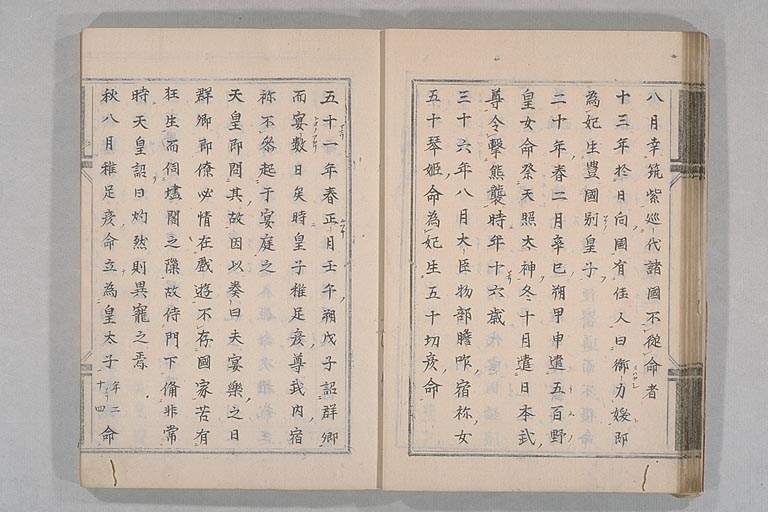 八月幸筑紫巡代諸國不從命者
十三年於日向國有佳人曰御刀媛即
為妃生豊國別皇子
二十年春二月辛巳朔甲申遣五百野
皇女命祭天照太神冬十月遣日本武
尊令撃熊襲時年十六歳
三十六年八月大臣物部膽咋宿祢女
五十琴姫命為妃生五十切彦命
五十一年春正月壬午朔戊子詔群卿
而宴数日矣時皇子稚足彦尊武内宿
祢不参赴于宴庭之
天皇即問其故因以奏曰夫宴樂之日
群卿即僚必情在戯遊不存國家苦有
狂生而伺墻閤之隙故侍門下俻非常
時天皇詔曰灼然則異寵之焉
秋八月稚足彦命立為皇太子年二十四命